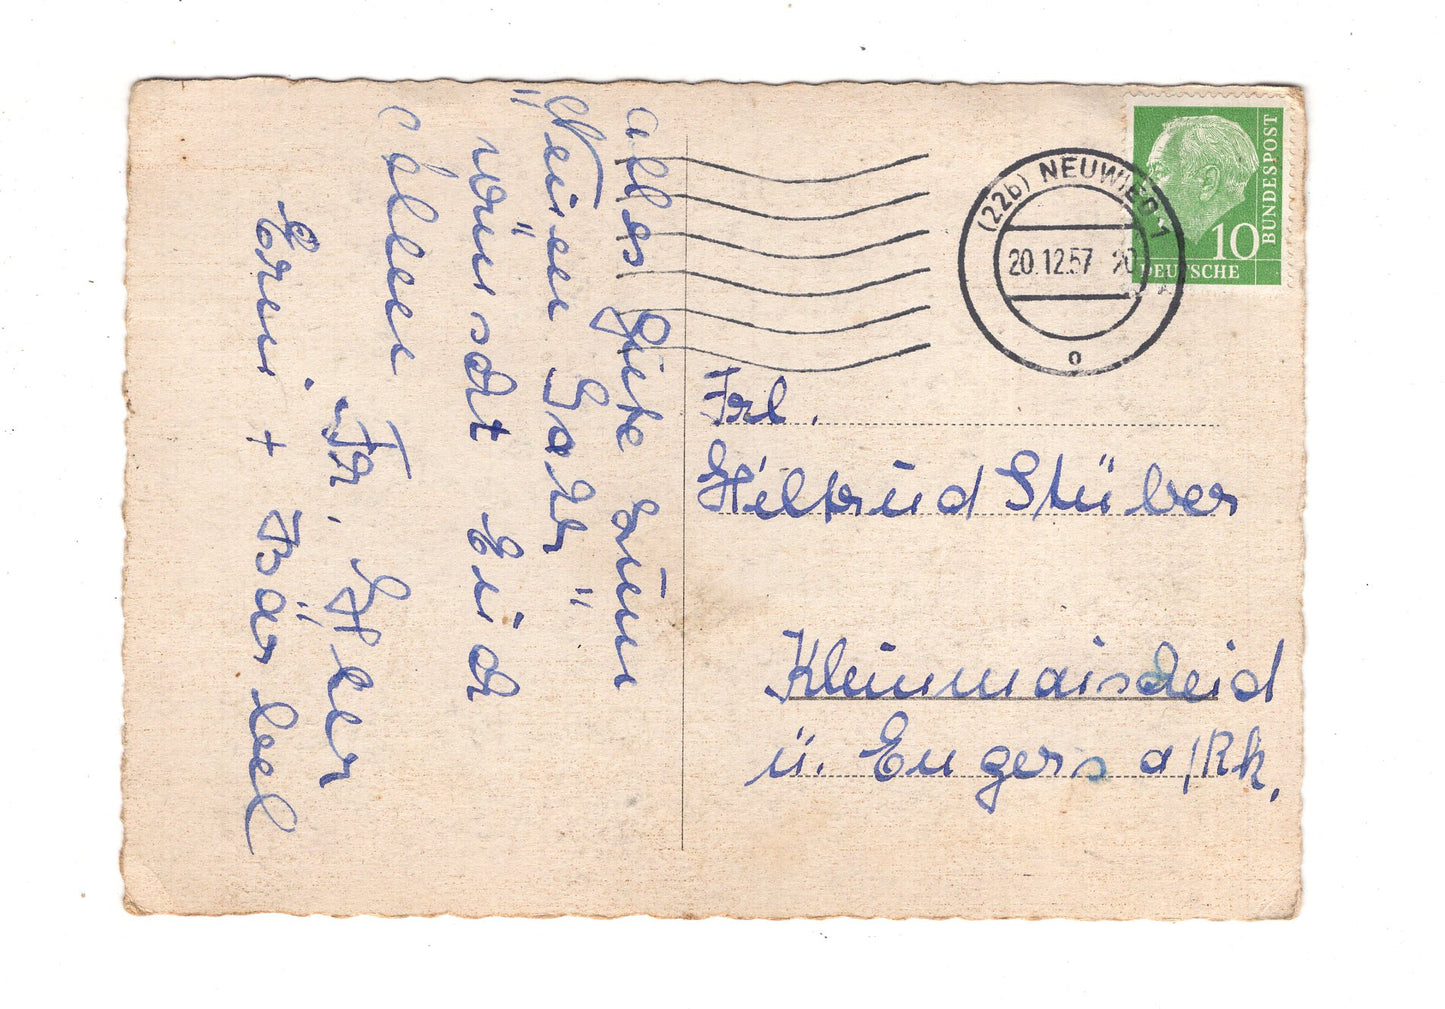 Alles Gute zum
"Neuen Jahr"
wünscht Euch
allen Fr.
Erni + Bärbel
Frl.
Hiltrud Stüber
Kleinmaischeid
ü. Engers a/Rh.
(22b) NEUWIED 1
20.12.57 20
o
10
DEUTSCHE
BUNDESPOST